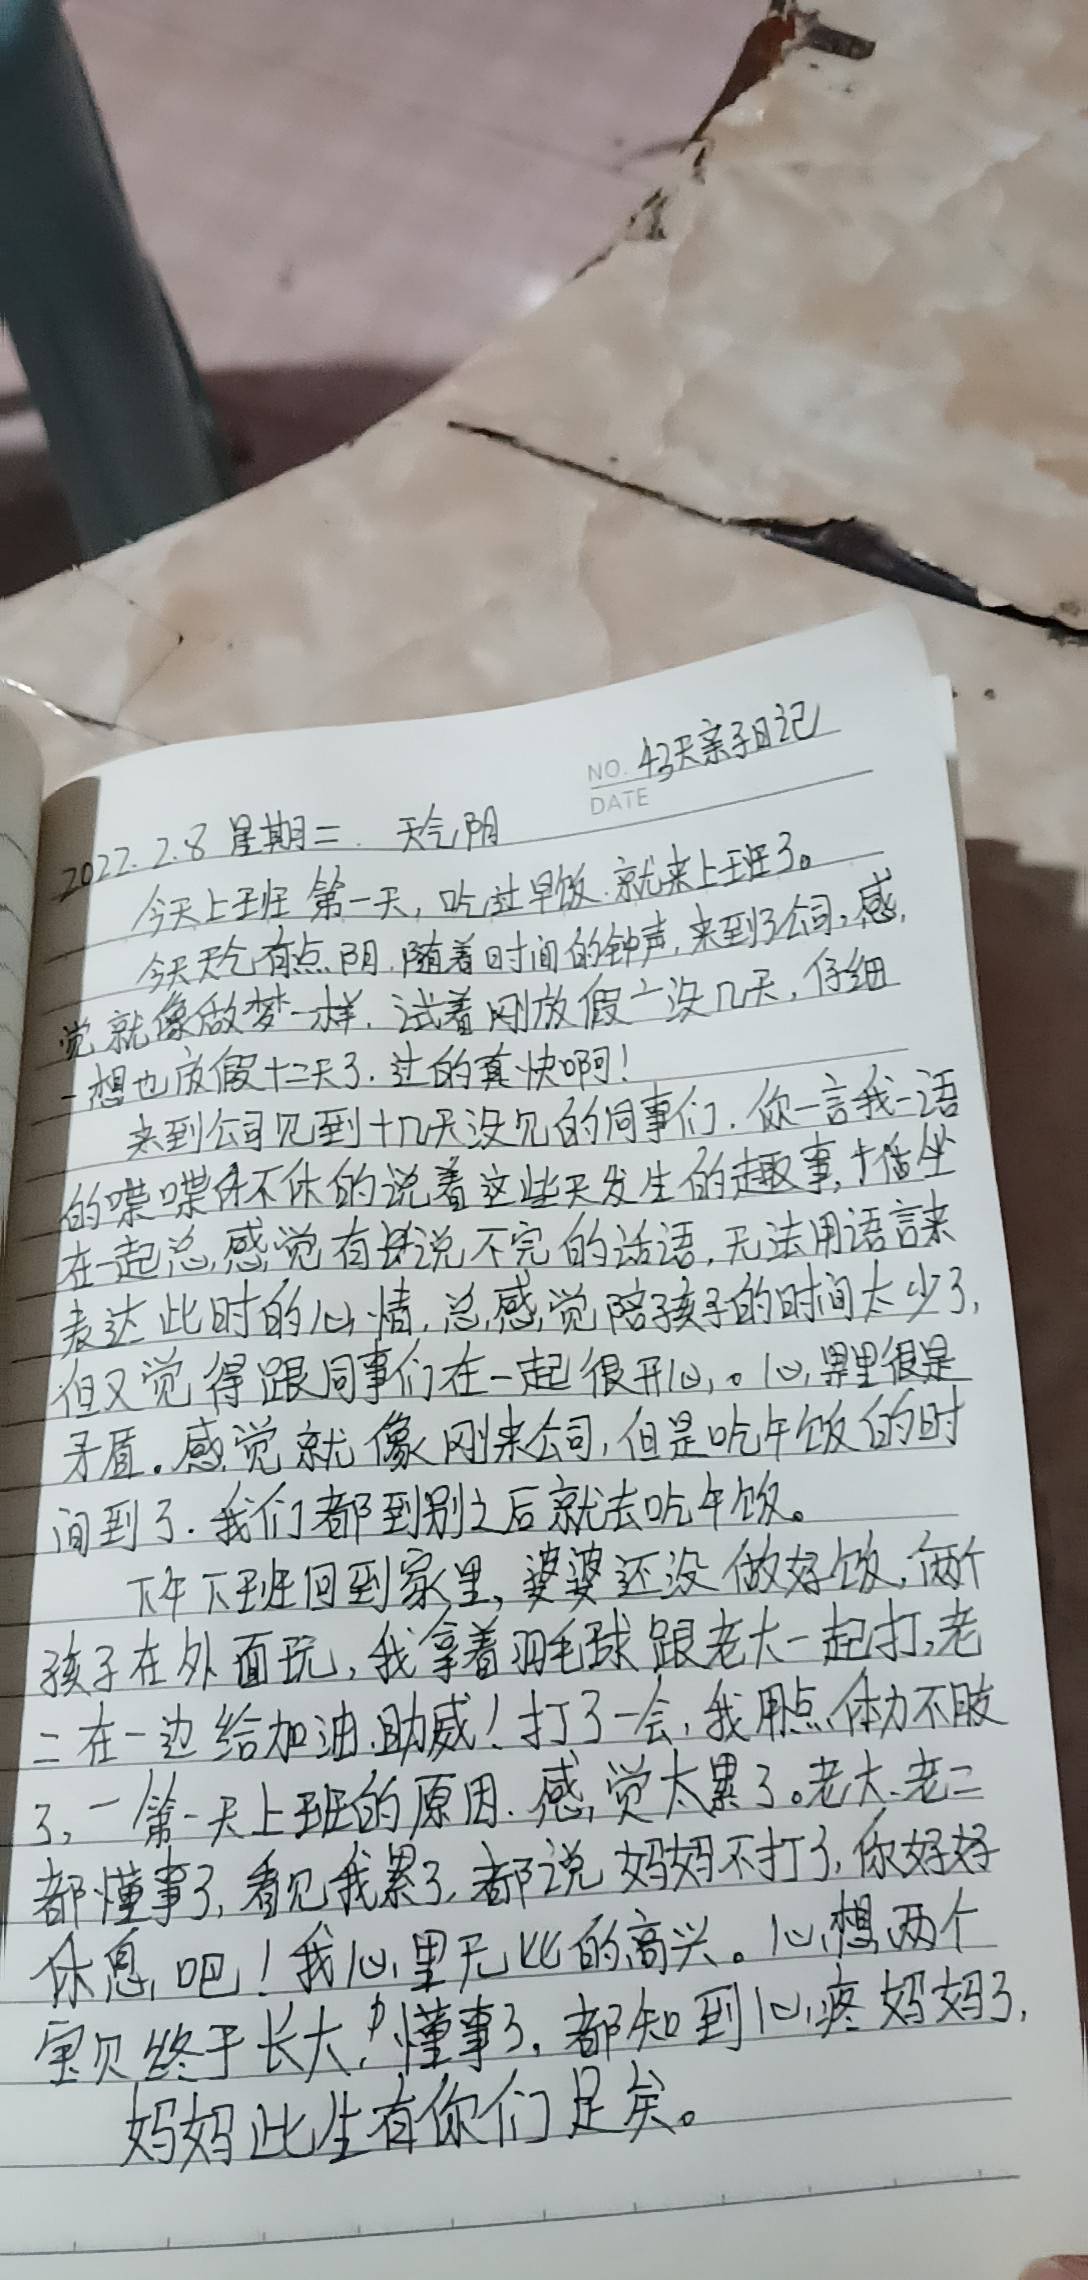 NO. 43天亲子日记
DATE
2022.2.8 星期二. 天气阴
今天上班第一天,吃过早饭.就来上班了。
今天天气有点阴.随着时间的钟声,来到了公司,感
觉就像做梦一样.试着刚放假一没几天,仔细
一想也放假十二天了.过的真快啊!
来到公司见到十几天没见的同事们.你一言我一语
的喋喋不休的说着这些天发生的趣事,坐
在一起总感觉有说不完的话语,无法用语言来
表达此时的心情.总感觉陪孩子的时间太少了,
但又觉得跟同事们在一起很开心。心里很是
矛盾。感觉就像刚来公司,但是吃午饭的时
间到了.我们都到别之后就去吃午饭。
下午下班回到家里,婆婆还没做好饭,两个
孩子在外面玩,我拿着羽毛球跟老大一起打,老
二在一边给加油助威!打了一会,我用点体力不肢
了,一第一天上班的原因.感觉太累了。老大、老二
都懂事了,看见我累了,都说妈妈不打了,你好好
休息吧!我心里无比的高兴。心想两个
宝贝终于长大,懂事了,都知到心疼妈妈了,
妈妈此生有你们足矣。